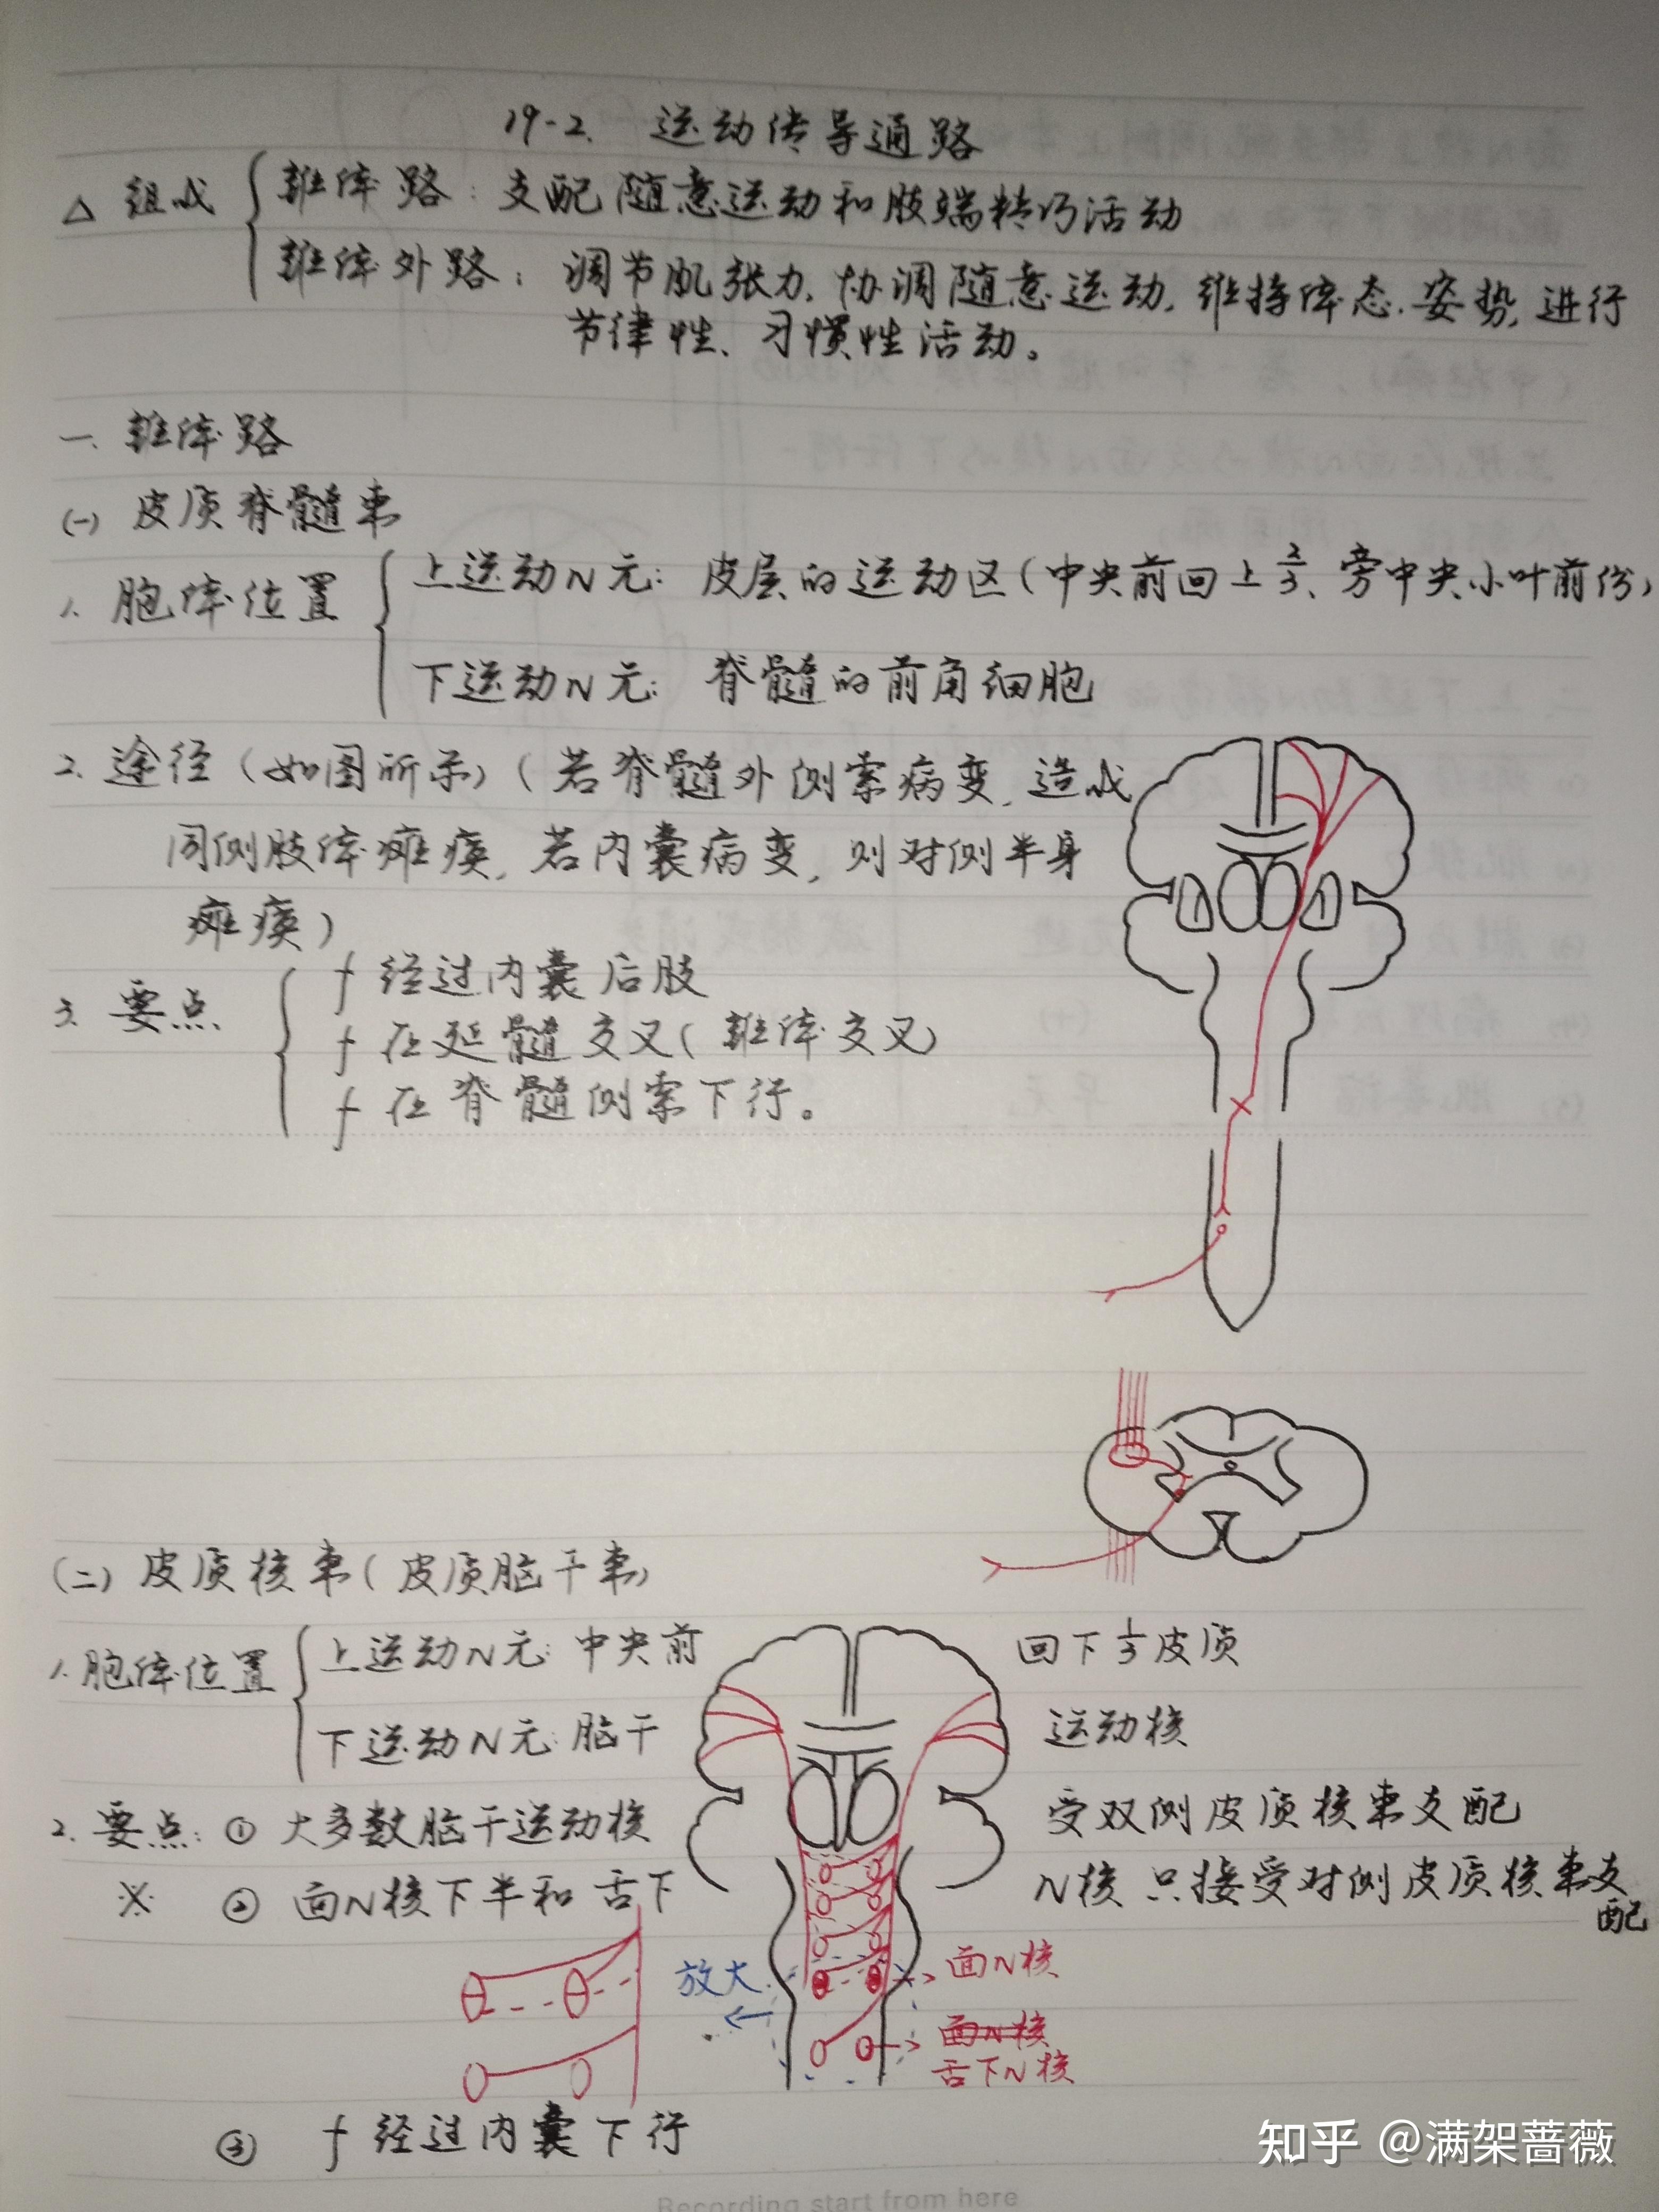 19-2. 运动传导通路
△ 组成 锥体路：支配随意运动和肢端精巧活动
锥体外路：调节肌张力、协调随意运动，维持体态、姿势，进行
节律性、习惯性活动。
一. 锥体路
(一) 皮质脊髓束
1. 胞体位置 上运动N元：皮层的运动区(中央前回上2/3、旁中央小叶前份)
下运动N元：脊髓的前角细胞
2. 途径(如图所示)(若脊髓外侧索病变，造成
同侧肢体瘫痪，若内囊病变，则对侧半身
瘫痪)
3. 要点 f 经过内囊后肢
f 在延髓交叉(锥体交叉)
f 在脊髓侧索下行。
(二) 皮质核束(皮质脑干束)
1. 胞体位置 上运动N元：中央前 回下1/3皮质
下运动N元：脑干 运动核
2. 要点：① 大多数脑干运动核 受双侧皮质核束支配
※ ② 面N核下半和舌下 N核只接受对侧皮质核束支
配
放大
面N核
面N核
舌下N核
③ f 经过内囊下行
知乎 @满架蔷薇
Recording start from here